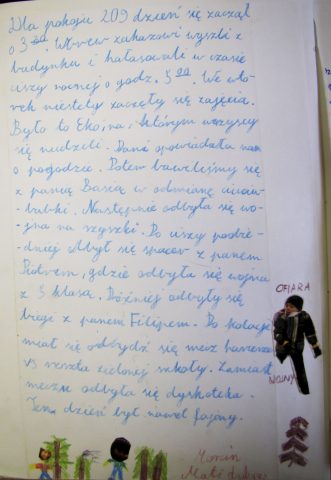 Dla pokoju 209 dzień się zaczął
o 3 00. Wbrew zakazowi wyszli z
budynku i hałasowali w czasie
ciszy nocnej o godz. 5 00. We wto-
rek niestety zaczęły się zajęcia.
Było to Eko, na którym wszyscy
się nudzili. Pani opowiadała nam
o pogodzie. Potem bawiliśmy się
z panią Basią w odmianę ciuciu-
babki. Następnie odbyła się wo-
jna na szyszki. Po ciszy połud-
niowej odbył się spacer z panem
Piotrem, gdzie odbyła się wojna
z 5 klasą. Później odbyły się
biegi z panem Filipem. Po kolacji
miał się odbyć mecz harcerze
vs reszta zielonej szkoły. Zamiast
meczu odbyła się dyskoteka.
Ten dzień był nawet fajny.
OFIARA
WOJNY
Marcin